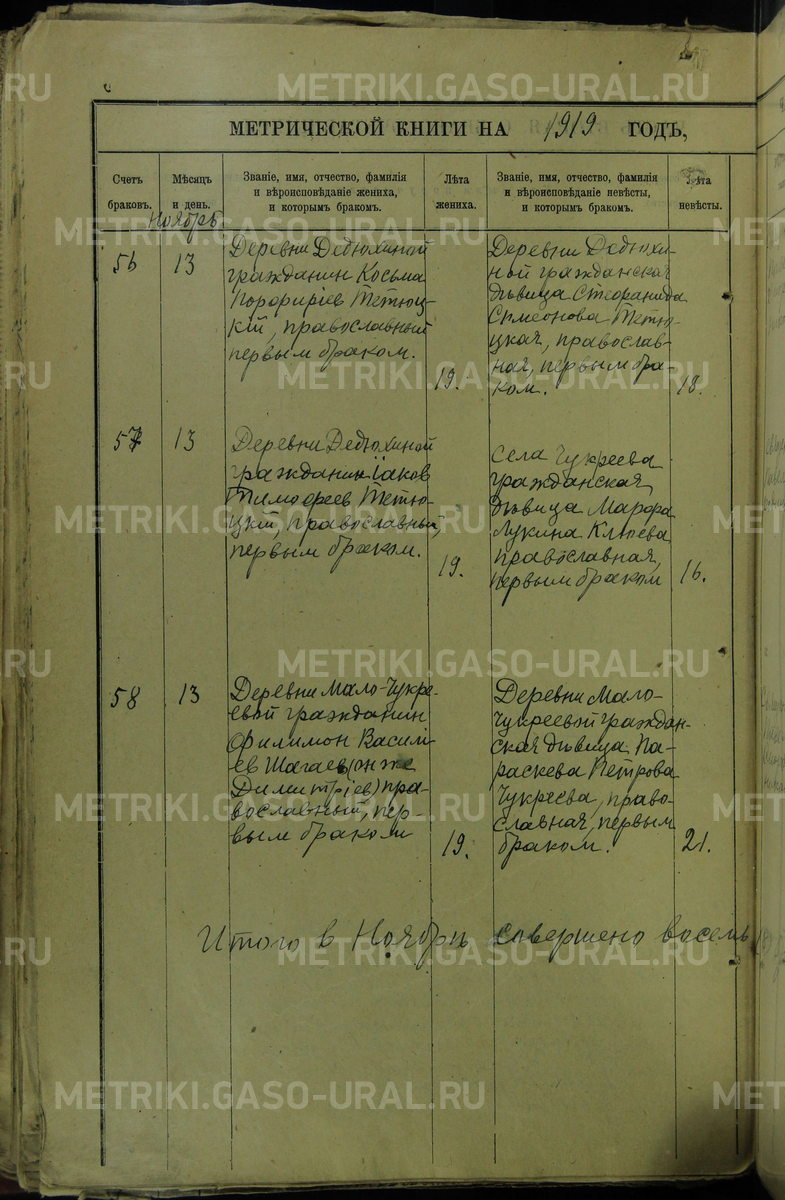 МЕТРИЧЕСКОЙ КНИГИ НА 1919 ГОДЪ,
Счетъ
браковъ.
Мѣсяцъ
и день.
Званіе, имя, отчество, фамилія
и вѣроисповѣданіе жениха,
и которымъ бракомъ.
Лѣта
жениха.
Званіе, имя, отчество, фамилія
и вѣроисповѣданіе невѣсты,
и которымъ бракомъ.
Лѣта
невѣсты.
Ноябрь
56
13
Деревни Дедюхиной
гражданин Косьма
Порфиріев Тетюц-
кій, православный
первым браком.
19.
Деревни Дедюхи-
ной гражданская
дѣвица Стефанида
Симеонова Тетю-
цкая, православ-
ная, первым бра-
ком.
18.
57
13
Деревни Дедюхиной
гражданин Іаков
Тимофеев Тетю-
цкій, православный,
первым браком.
19.
села Чукреева
гражданская
дѣвица Марфа
Лукина Клюева
православная,
первым браком
16.
58
13
Деревни Мало-Чукре-
евой гражданин
Филимон Васılі-
ев Шагаев (он же
Димитріев) пра-
вославный, пер-
вым браком
19.
Деревни Мало-
Чукреевой граждан-
ская дѣвица Па-
раскева Петрова
Чукреева, право-
славная, первым
браком.
21.
Итого в Ноябрѣ совершено восемь
METRIKI.GASO-URAL.RU